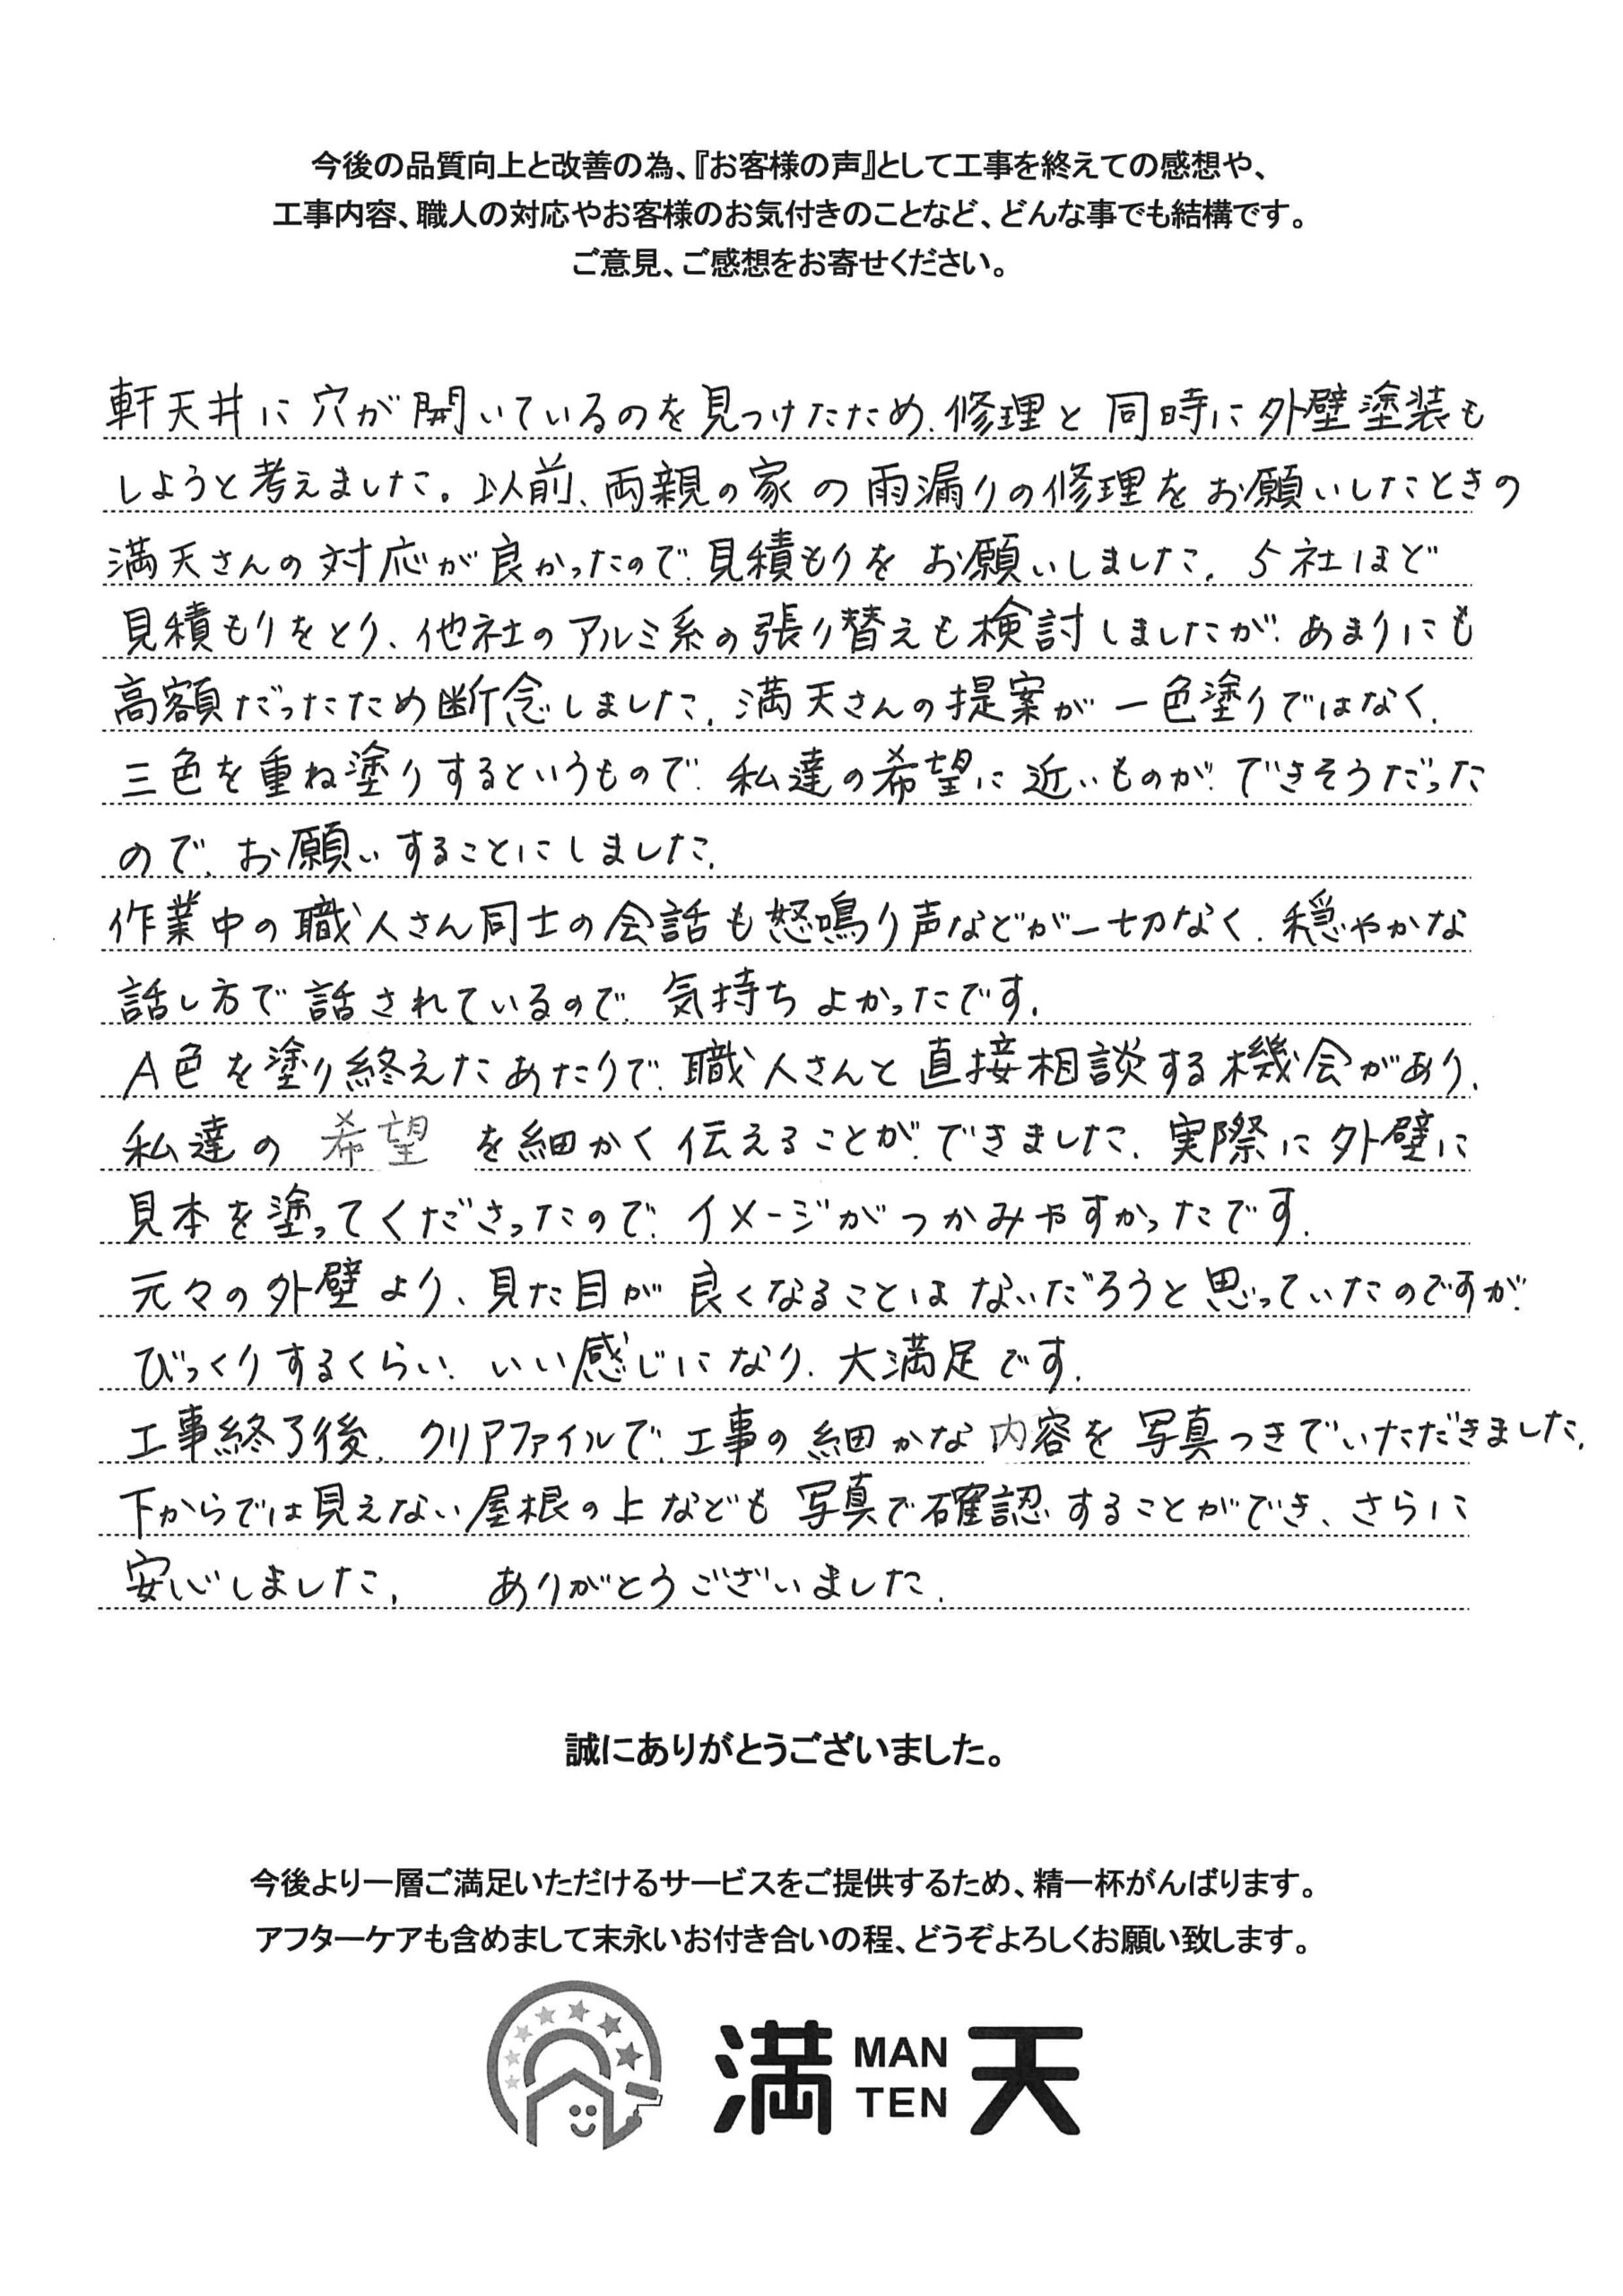 今後の品質向上と改善の為、『お客様の声』として工事を終えての感想や、
工事内容、職人の対応やお客様のお気付きのことなど、どんな事でも結構です。
ご意見、ご感想をお寄せください。
軒天井に穴が開いているのを見つけたため、修理と同時に外壁塗装も
しようと考えました。以前、両親の家の雨漏りの修理をお願いしたときの
満天さんの対応が良かったので、見積もりをお願いしました。5社ほど
見積もりをとり、他社のアルミ系の張り替えも検討しましたが、あまりにも
高額だったため断念しました。満天さんの提案が一色塗りではなく、
三色を重ね塗りするというもので、私達の希望に近いものが、できそうだった
ので、お願いすることにしました。
作業中の職人さん同士の会話も怒鳴り声などが一切なく、穏やかな
話し方で話されているので、気持ちよかったです。
A色を塗り終えたあたりで、職人さんと直接相談する機会があり、
私達の希望を細かく伝えることができました。実際に外壁に
見本を塗ってくださったので、イメージがつかみやすかったです。
元々の外壁より、見た目が良くなることはないだろうと思っていたのですが、
びっくりするくらい、いい感じになり、大満足です。
工事終了後、クリアファイルで、工事の細かな内容を写真つきでいただきました。
下からでは見えない屋根の上なども写真で確認することができ、さらに
安心しました。 ありがとうございました。
誠にありがとうございました。
今後より一層ご満足いただけるサービスをご提供するため、精一杯がんばります。
アフターケアも含めまして末永いお付き合いの程、どうぞよろしくお願い致します。
満 MAN TEN 天